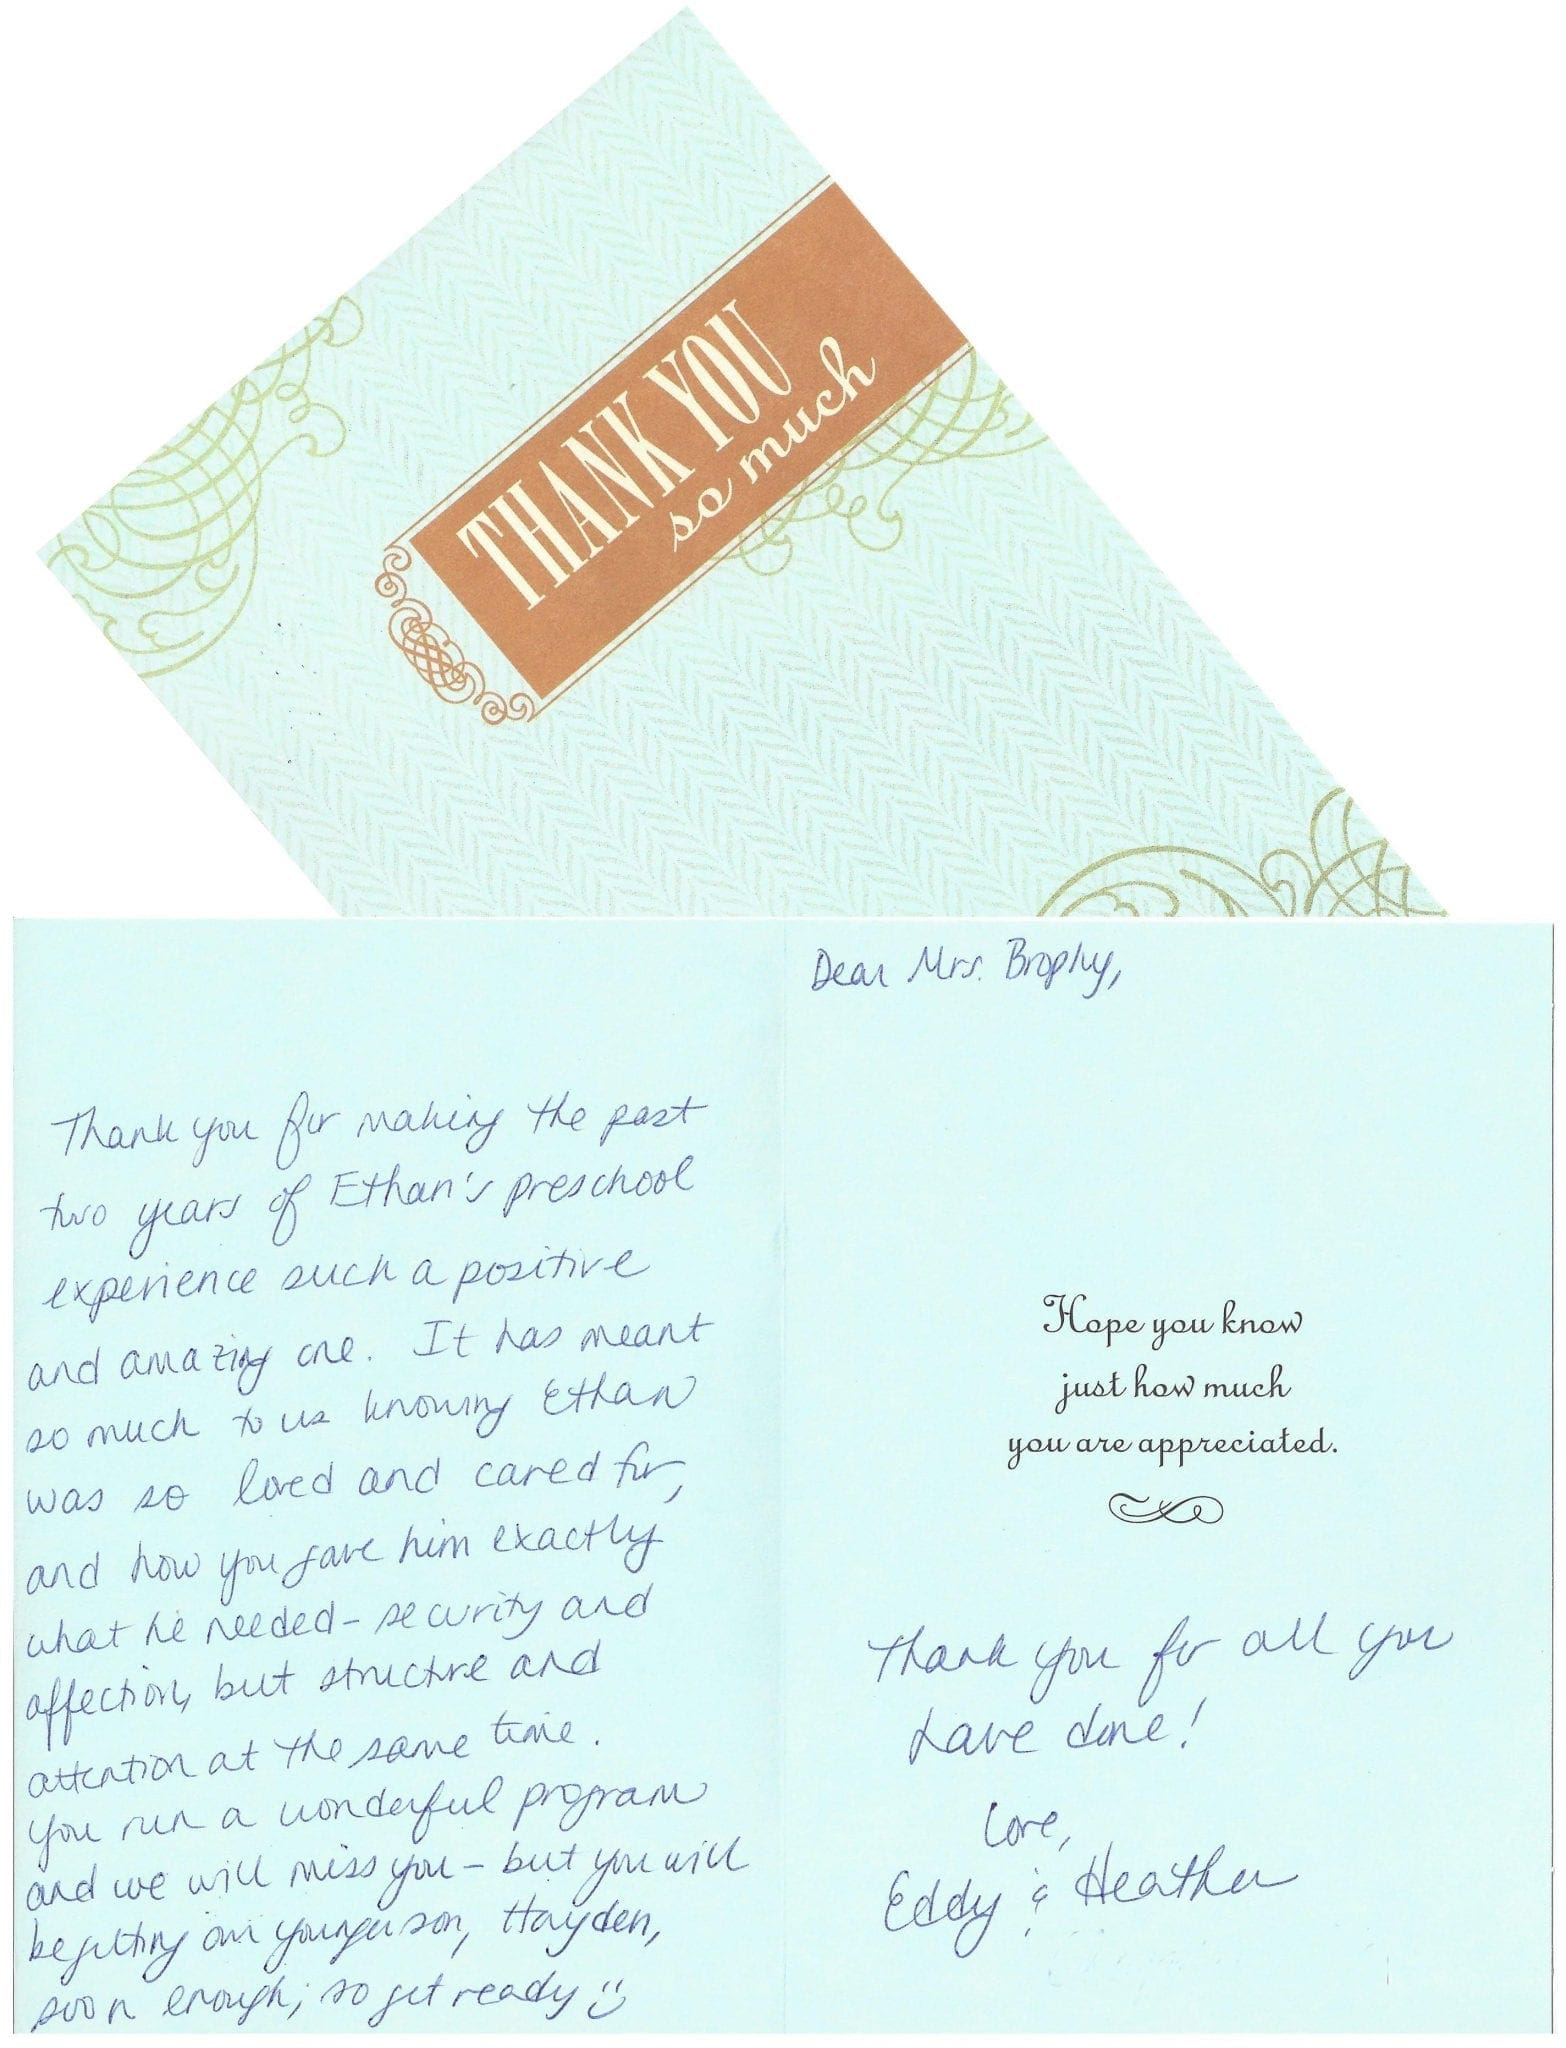 THANK YOU
so much
Dear Mrs. Brophy,
Thank you for making the past
two years of Ethan's preschool
experience such a positive
and amazing one. It has meant
so much to us knowing Ethan
was so loved and cared for,
and how you gave him exactly
what he needed - security and
affection, but structure and
attention at the same time.
You run a wonderful program
and we will miss you - but you will
be getting our younger son, Hayden,
soon enough; so get ready
Hope you know
just how much
you are appreciated.
Thank you for all you
have done!
Love,
Eddy & Heather